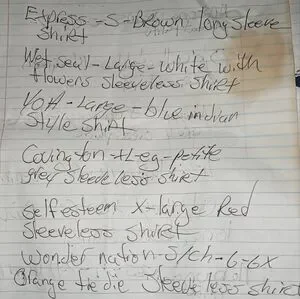 Express - S - Brown long sleeve
shirt
Wet seal - Large - white with
flowers sleeveless shirt
- Large - blue indian
style shirt
Covington - XLeg - petite
grey sleeveless shirt
self esteem X-large Red
sleeveless shirt
wonder nation - S/ch - 6-6X
Orange tie die sleeveless shirt